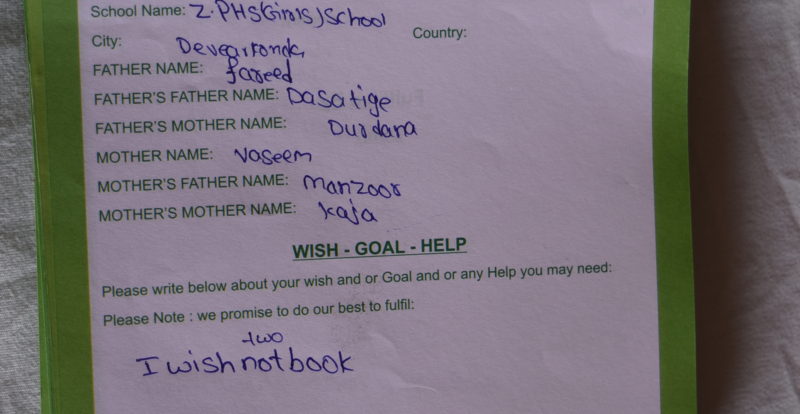 School Name: Z.PHS(Girls)School
City: Devearkonda Country:
FATHER NAME: fareed
FATHER'S FATHER NAME: Dasatige
FATHER'S MOTHER NAME: Durdana
MOTHER NAME: Naseem
MOTHER'S FATHER NAME: Manzoor
MOTHER'S MOTHER NAME: Kaja
WISH - GOAL - HELP
Please write below about your wish and or Goal and or any Help you may need:
Please Note : we promise to do our best to fulfil:
two
I wish notbook